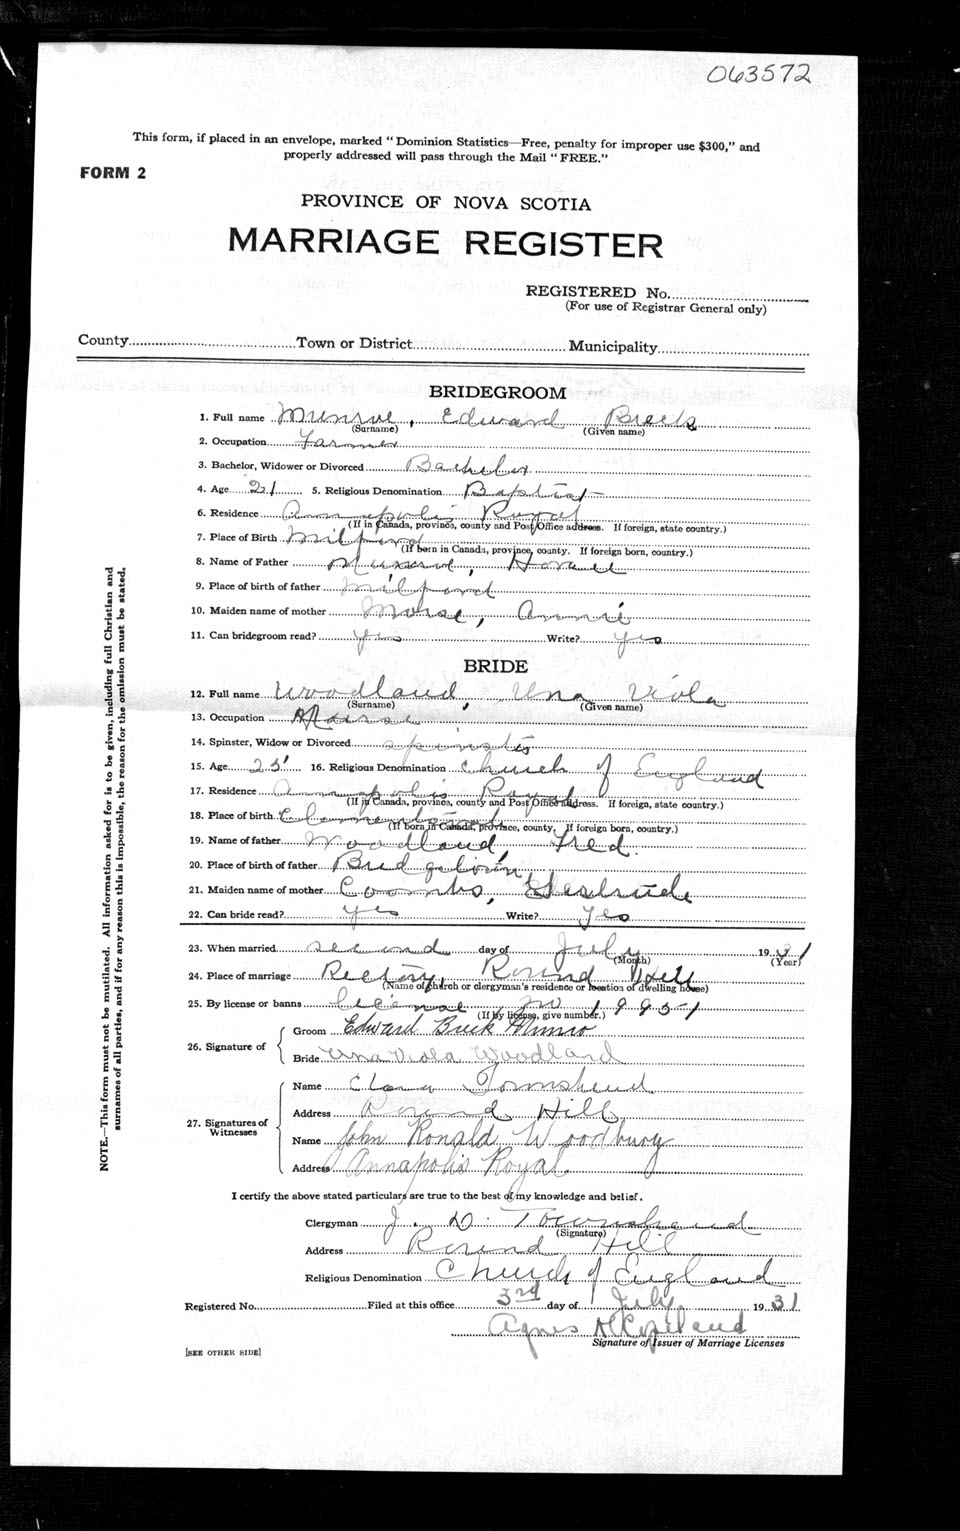 063572
This form, if placed in an envelope, marked "Dominion Statistics—Free, penalty for improper use $300," and
properly addressed will pass through the Mail "FREE."
FORM 2
PROVINCE OF NOVA SCOTIA
MARRIAGE REGISTER
REGISTERED No.
(For use of Registrar General only)
County Town or District Municipality
BRIDEGROOM
1. Full name Munroe, Edward
(Surname) (Given name)
2. Occupation Farmer
3. Bachelor, Widower or Divorced Bachelor
4. Age 21 5. Religious Denomination Baptist
6. Residence Annapolis Royal
(If in Canada, province, county and Post Office address. If foreign, state country.)
7. Place of Birth Milford
(If born in Canada, province, county. If foreign born, country.)
8. Name of Father
9. Place of birth of father Milford
10. Maiden name of mother Morse, Annie
11. Can bridegroom read? yes Write? yes
BRIDE
12. Full name Woodland, Una Viola
(Surname) (Given name)
13. Occupation Nurse
14. Spinster, Widow or Divorced spinster
15. Age 25 16. Religious Denomination Church of England
17. Residence Annapolis Royal
(If in Canada, province, county and Post Office address. If foreign, state country.)
18. Place of birth Clementsport
(If born in Canada, province, county. If foreign born, country.)
19. Name of father Woodland, Fred.
20. Place of birth of father Bridgetown
21. Maiden name of mother Coombs, Gertrude
22. Can bride read? yes Write? yes
23. When married second day of July 1931
(Month) (Year)
24. Place of marriage Rectory, Round Hill
(Name of church or clergyman's residence or location of dwelling house)
25. By license or banns license no 19951
(If by license, give number.)
Groom Edward Buck Munro
26. Signature of
Bride Una Viola Woodland
Name Clara Townshend
Address Round Hill
27. Signatures of
Witnesses
Name John Ronald Woodbury
Address Annapolis Royal.
I certify the above stated particulars are true to the best of my knowledge and belief.
Clergyman J. D. Townshend
(Signature)
Address Round Hill
Religious Denomination Church of England
Registered No. Filed at this office 3rd day of July 1931
Agnes H Copeland
Signature of Issuer of Marriage Licenses
[SEE OTHER SIDE]
NOTE.—This form must not be mutilated. All information asked for is to be given, including full Christian and
surnames of all parties, and if for any reason this is impossible, the reason for the omission must be stated.